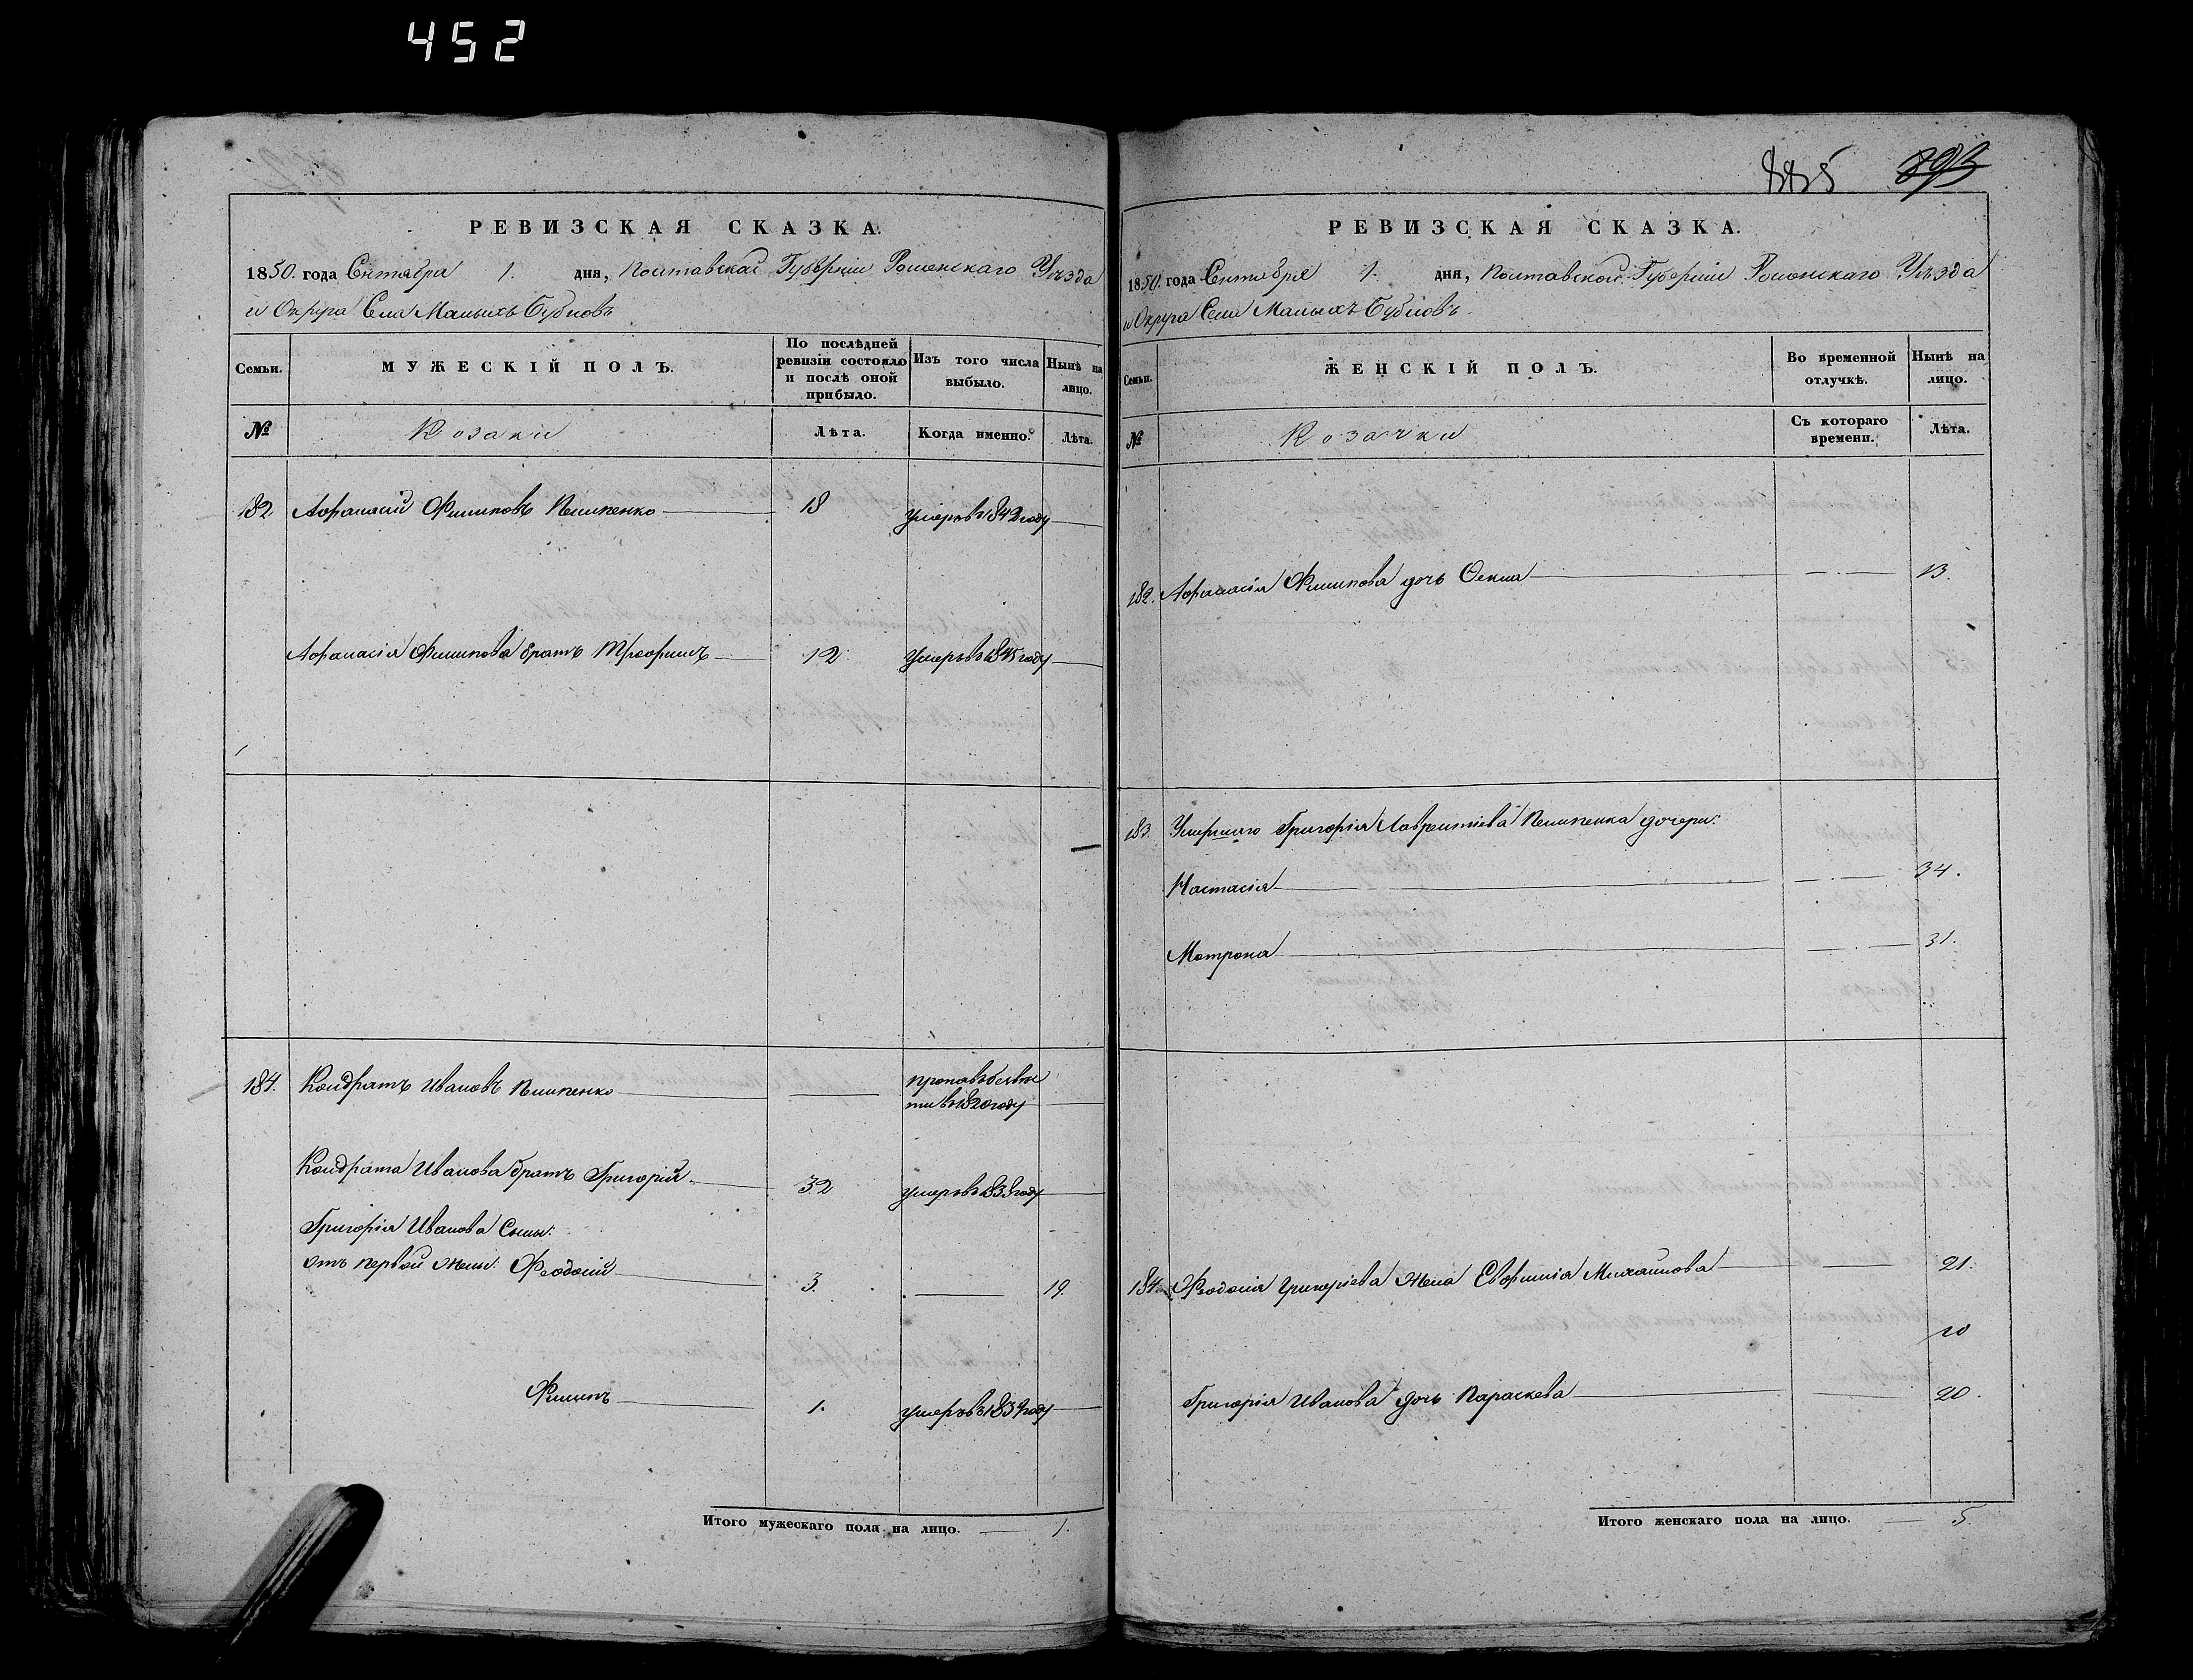 452
РЕВИЗСКАЯ СКАЗКА.
1850. года Сентября 1. дня, Полтавской Губерніи Роменскаго Уѣзда
и Округа Села Малыхъ Бубновъ
Семьи.
МУЖЕСКІЙ ПОЛЪ.
По послѣдней ревизіи состояло и послѣ оной прибыло.
Изъ того числа выбыло.
Нынѣ на лицо.
№
Козаки
Лѣта.
Когда именно.
Лѣта.
182. Афанасій Филиповъ Пилипенко 18 умеръ въ 1842 году
Афанасія Филипова братъ Трофимъ 12 умеръ въ 1845 году
184. Кондратъ Ивановъ Пилипенко пропавъ безвѣс
ти в 1820 году
Кондрата Иванова братъ Григорій 32 умеръ въ 1838 году
Григорія Иванова Сыны:
отъ первой жены: Феодосій 3. 19.
Филипъ 1. умеръ въ 1839 году
Итого мужескаго пола на лицо. 1.
885 893
РЕВИЗСКАЯ СКАЗКА.
1850. года Сентября 1. дня, Полтавской Губерніи Роменскаго Уѣзда
и Округа Села Малыхъ Бубновъ.
Семьи.
ЖЕНСКІЙ ПОЛЪ.
Во временной отлучкѣ.
Нынѣ на лицо.
№
Козачки
Съ котораго времени.
Лѣта.
182. Афанасія Филипова дочь Фекла 13.
183. Умершаго Григорія Лаврентіева Пилипенка дочери:
Настасія 34.
Мотрона 31.
184. Феодосія Григоріева жена Евфимія Михайлова 21.
20
Григорія Иванова дочь Параскева 20.
Итого женскаго пола на лицо. 5.